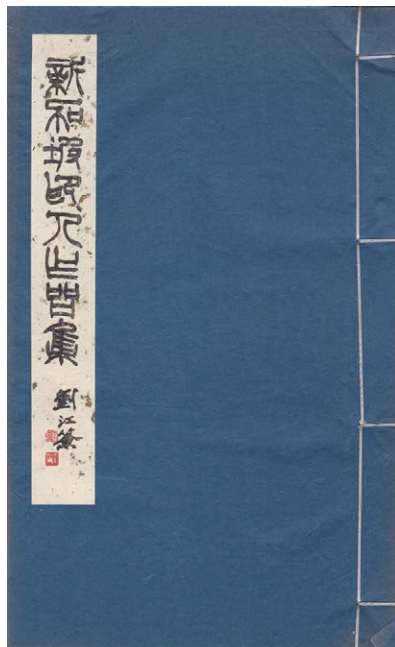 新加坡印人作品集
劉江篆